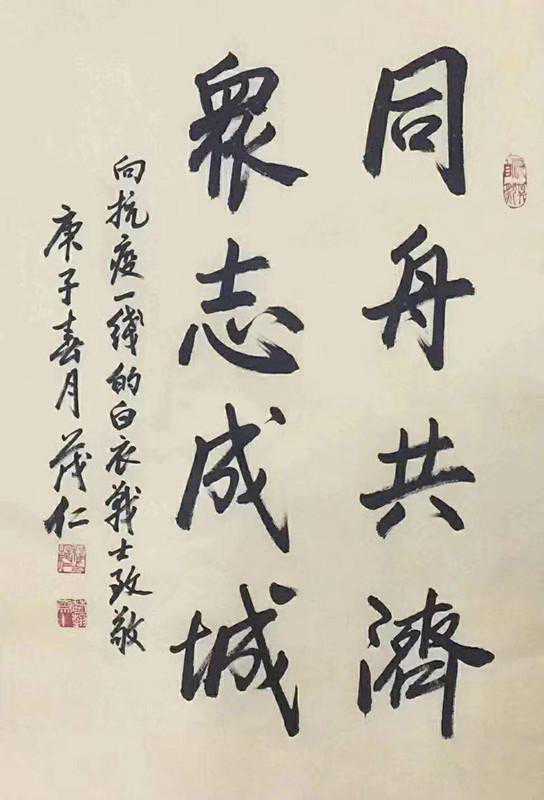 同舟共濟
眾志成城
向抗疫一线的白衣战士致敬
庚子春月 茂仁